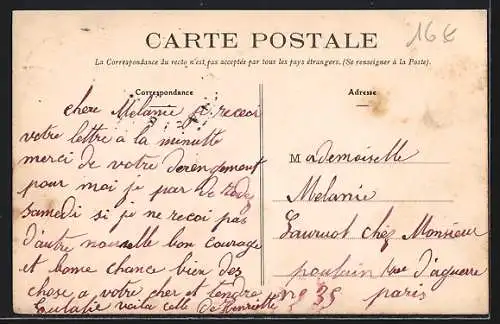 16€
CARTE POSTALE
La Correspondance du recto n'est pas acceptée par tous les pays étrangers. (Se renseigner à la Poste).
Correspondance
Adresse
chere Melanie je receoi
votre lettre a la minutte
merci de votre derengement
pour moi je par de
samedi si je ne recoi pas
d'autre nouvelle bon courage
et bonne chance bien des
chose a votre cher et tendre
voila celle de Henriette
Mademoiselle
Melanie
chez Monsieur
poulain rue d'aguerre
n° 35 paris